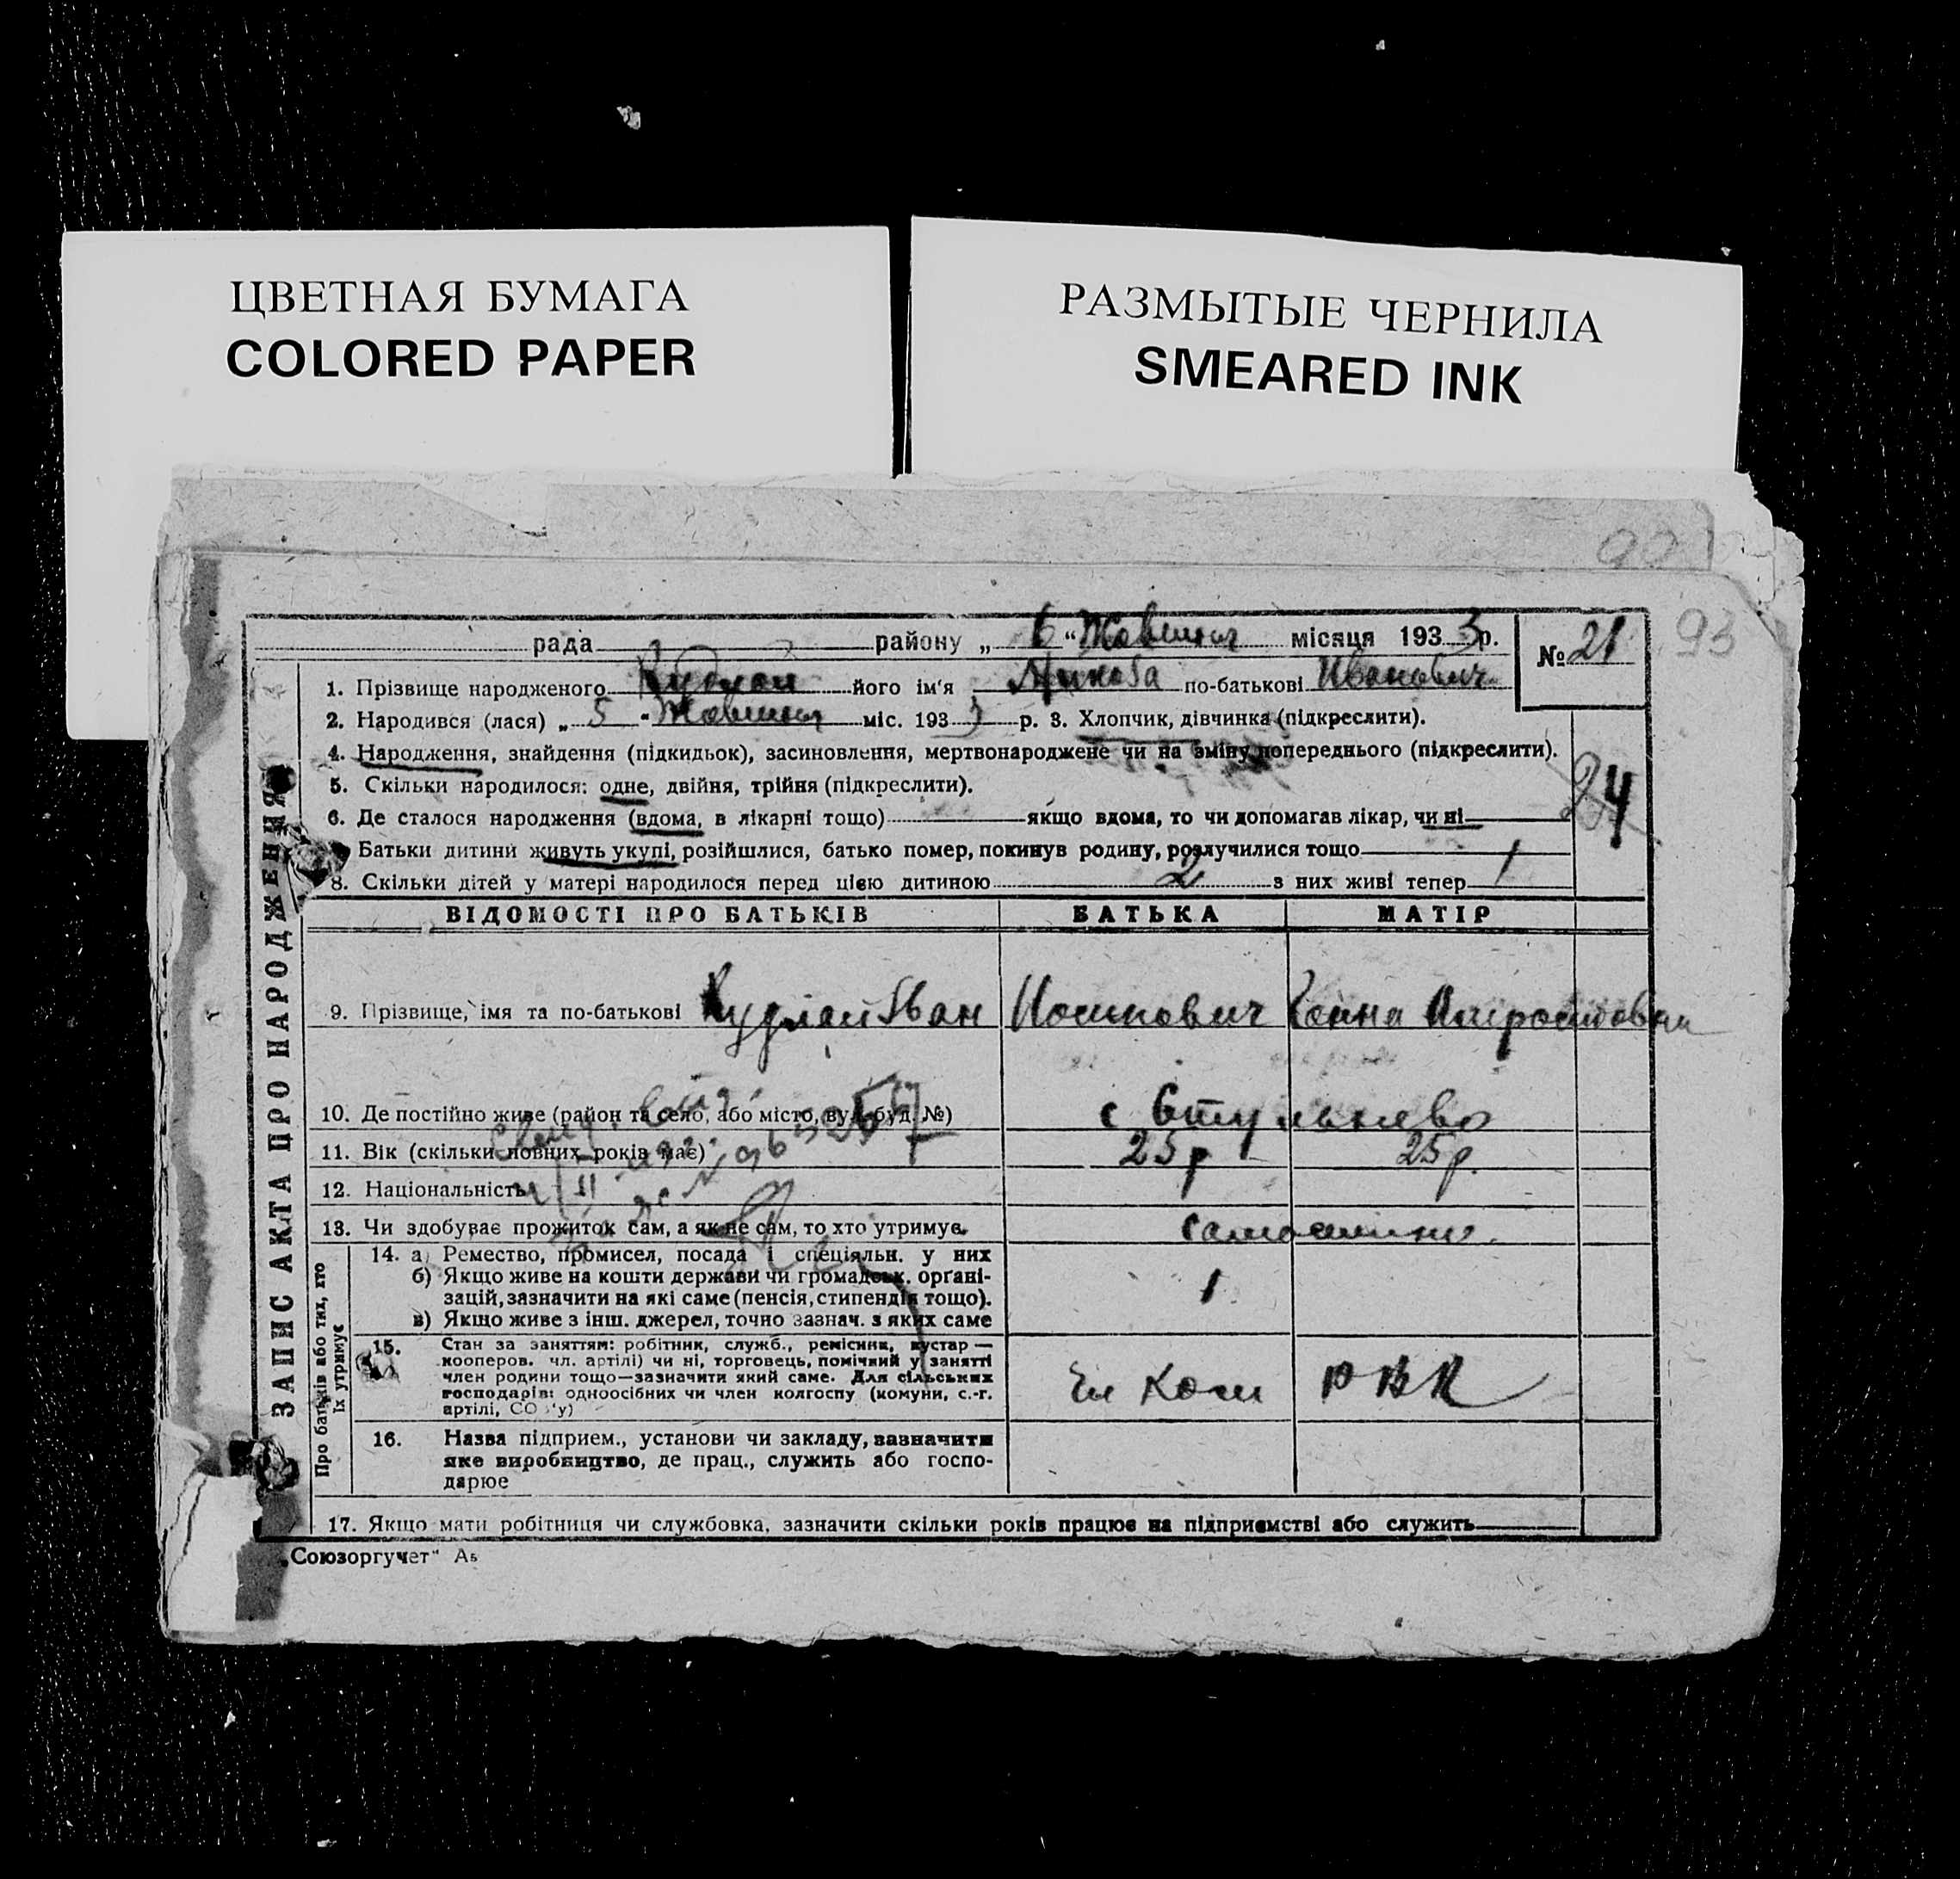 ЦВЕТНАЯ БУМАГА
COLORED PAPER
РАЗМЫТЫЕ ЧЕРНИЛА
SMEARED INK
90
93
ЗАПИС АКТА ПРО НАРОДЖЕННЯ
рада району „ 6 “ Жовтня місяця 1933 р. № 21
1. Прізвище народженого його ім'я по-батькові Иванович
2. Народився (лася) „ 5 “ Жовтня міс. 1933 р. 3. Хлопчик, дівчинка (підкреслити).
4. Народження, знайдення (підкидьок), засиновлення, мертвонароджене чи на зміну попереднього (підкреслити).
5. Скільки народилося: одне, двійня, трійня (підкреслити).
24
6. Де сталося народження (вдома, в лікарні тощо) якщо вдома, то чи допомагав лікар, чи ні
Батьки дитини живуть укупі, розійшлися, батько помер, покинув родину, розлучилися тощо
8. Скільки дітей у матері народилося перед цією дитиною 2 з них живі тепер 1
ВІДОМОСТІ ПРО БАТЬКІВ БАТЬКА МАТІР
9. Прізвище, імя та по-батькові Кудлай Іван
10. Де постійно живе (район та село, або місто, вул. буд. №) с
11. Вік (скільки повних років має) 25 р 25 р.
12. Національність
13. Чи здобуває прожиток сам, а як не сам, то хто утримує.
Про батьків або тих, хто їх утримує
14. а) Ремество, промисел, посада і спеціяльн. у них
б) Якщо живе на кошти держави чи громадськ. орґані-
зацій, зазначити на які саме (пенсія, стипендія тощо).
в) Якщо живе з інш. джерел, точно зазнач. з яких саме
1
15. Стан за заняттям: робітник, служб., ремісник, кустар —
кооперов. чл. артілі) чи ні, торговець, помічний у занятті
член родини тощо—зазначити який саме. Для сільських
господарів: одноосібних чи член колгоспу (комуни, с.-г.
артілі, СО у)
16. Назва підприєм., установи чи закладу, зазначити
яке виробництво, де прац., служить або госпо-
дарює
17. Якщо мати робітниця чи службовка, зазначити скільки років працює на підприємстві або служить
„Союзоргучет“ А5